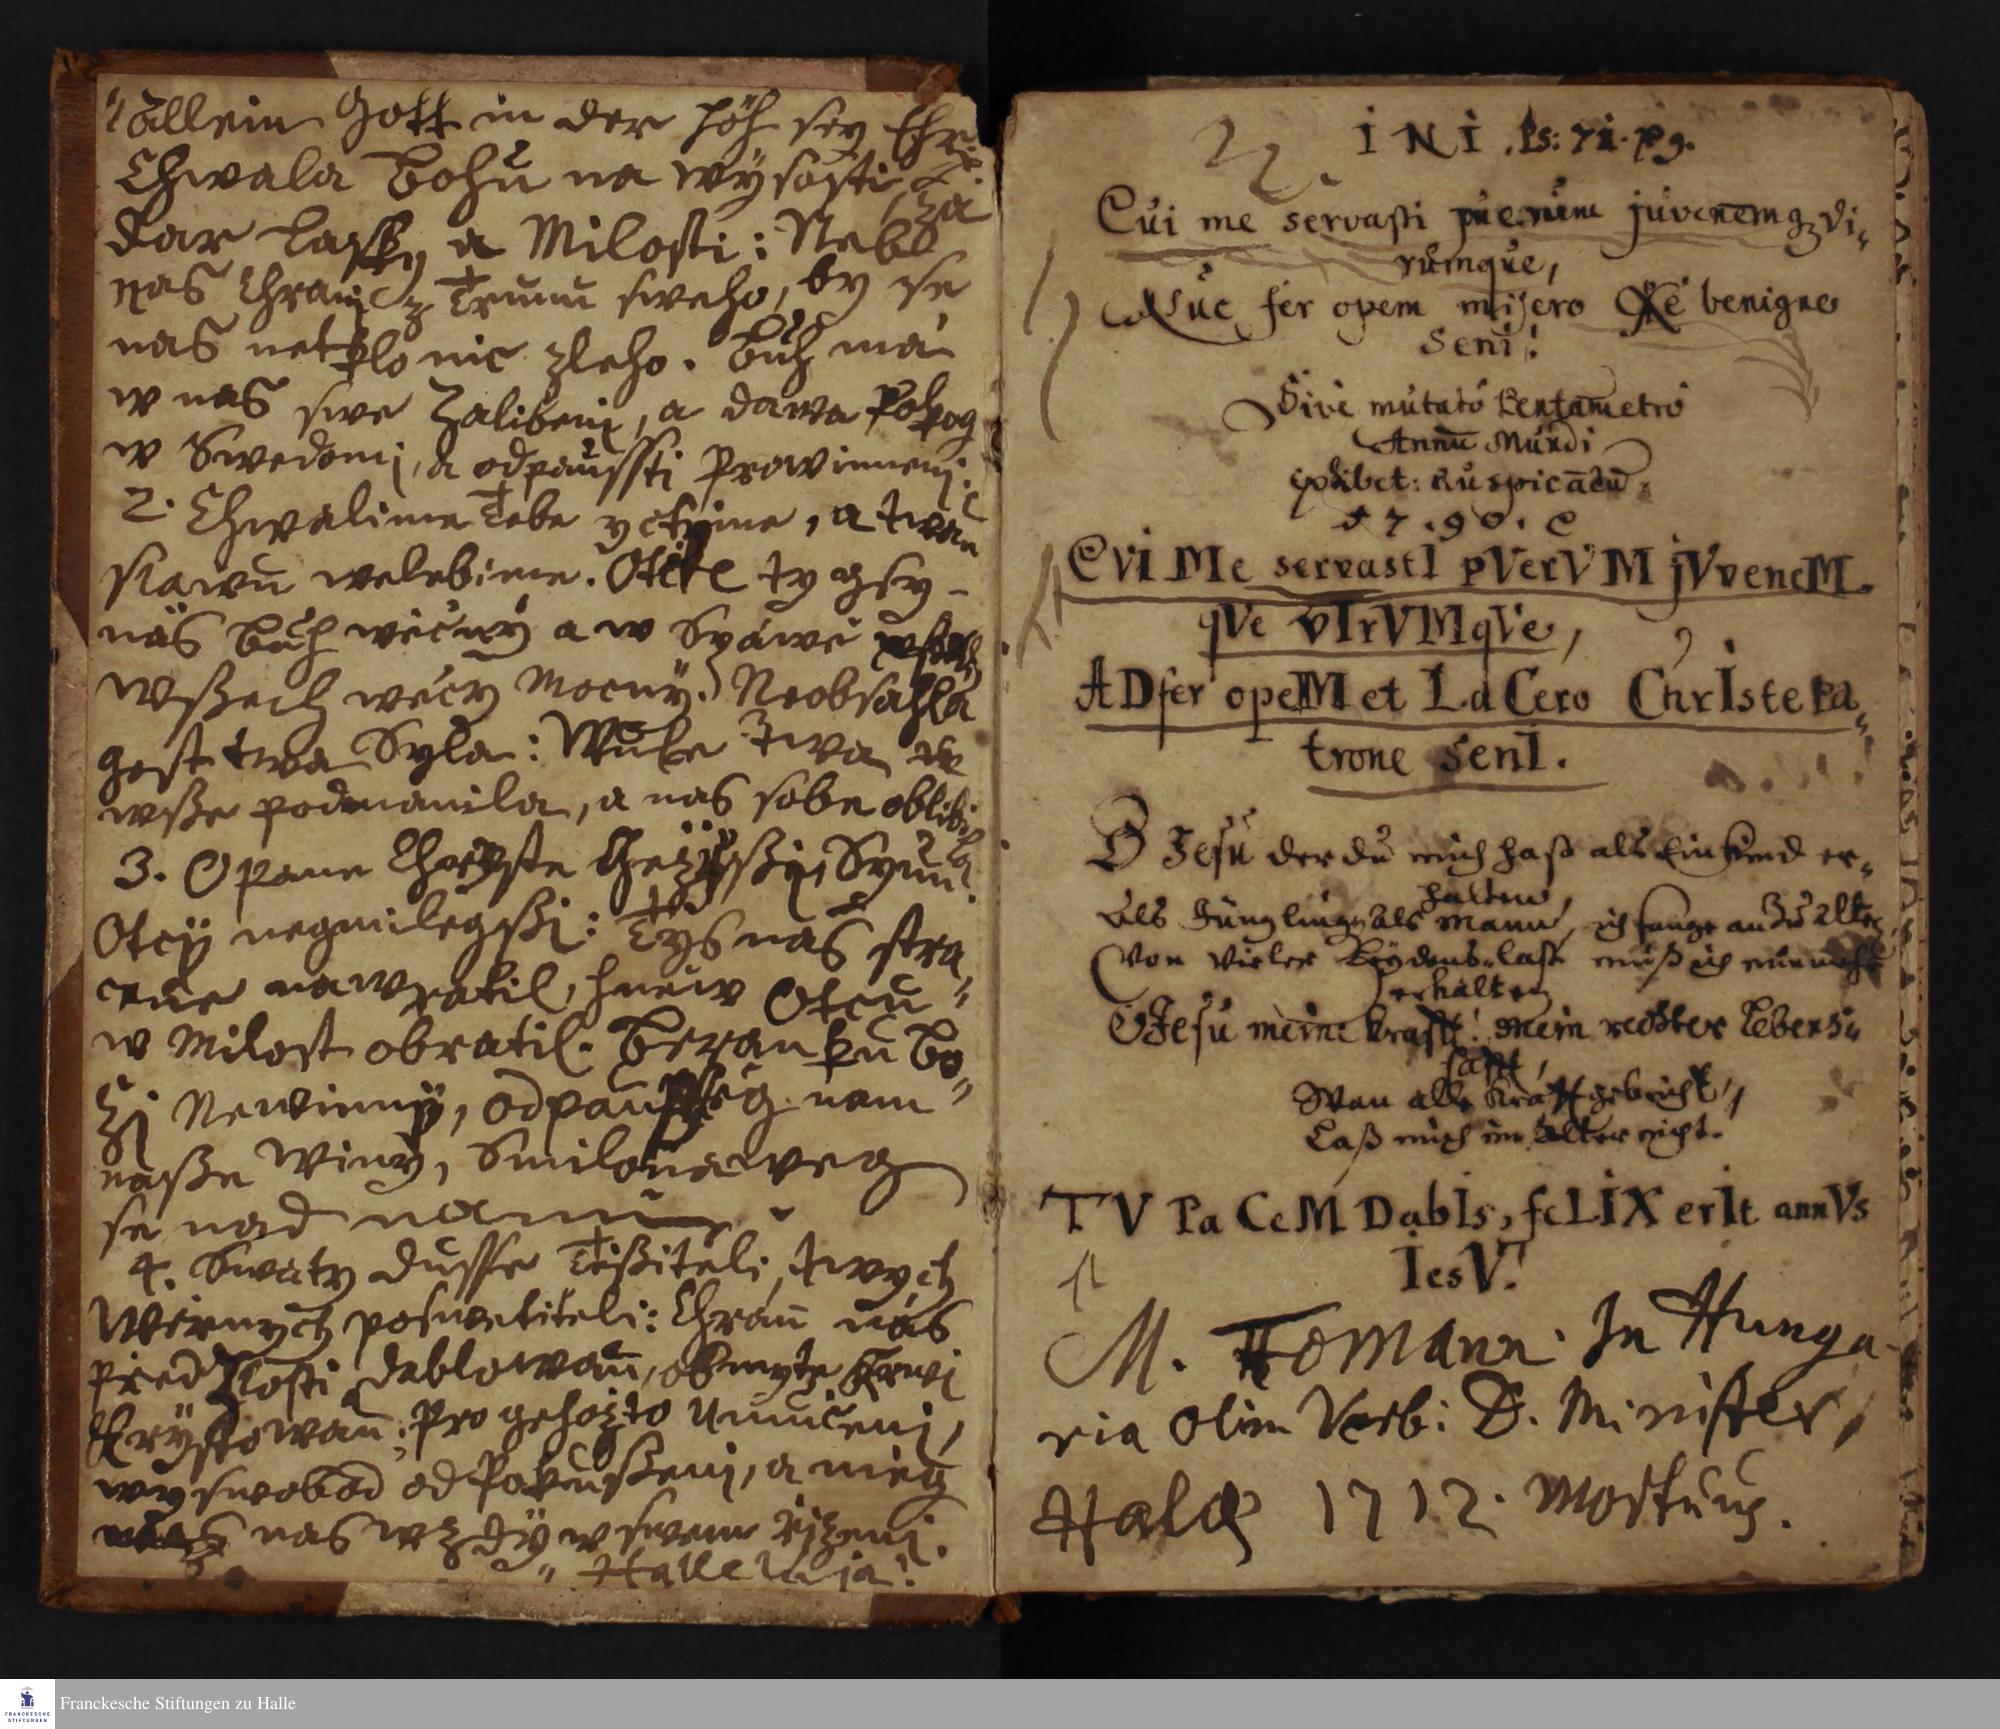 Allein Gott in der höh sey Ehr.
Chwala Bohu na wysosti, za
dar Lasky a Milosti: Nebo
nas Chrani z Trunu sweho, by se
nas netklo nic zleho. Bůh má
w nas swe Zalibeni, a dawa Pokog
w Swedomi, a odpaussti Prowineni.
2. Chwalime Tebe yctime, a twau
slawu welebime. Otče ty gsy
náš Bůh wěčný a w Sláwě
wßech wěcy Mocný. Neobsahla
gest twa Syla: Wůle twa
wße podmanila, a nas sobe oblibila
3. O pane Chryste Gežjßi, Synu
Otcy negmilegßi: Tys nás stra„
cene nawratil, hněw Otců„
w Milost obratil. Beranku Bo„
žj Newinný, odpaussteg nam
naße Winy, Smilowaweg
se nad nami.
4. Swaty dusse Těßiteli, twych
Wěrnych poswetiteli: Chraň nás
před Zlosti dablowau, obmyte Krwi
Krystowau; pro gehožto umučeni,
wyswobod od Pokußeni, a měg
nas wždy w swem řjzeni.
„Halleluja!
I N I. Ps: 71. v 9.
Cui me servasti puerum juvenemq₃ vi„
rumque,
Huc fer opem misero Xe benigne
Seni!
Sive mutato Pentametro
Annu Mundi
exhibet: auspicādū:
CVi Me servastI pVerVM jVveneM„
qVe vIrVMqVe,
ADfer opeM et LaCero ChrIste Pa„
trone senI.
O Jesu der du mich hast als Ein kind er„
halten,
Als Jüngling, als Mann, ich fange an zu alten,
Von vieler Leydens-last muß ich nunmehr
erkalten
O Jesu meine krafft! Mein rechter Lebens„
safft,
Wan alle Krafft gebricht,
Laß mich im Alter nicht.
TV PaCeM DabIs, feLIX erIt annVs
IesV!
M. Tomann. In Hunga„
ria olim Verb: D. Minister,
Halæ 1712.
Franckesche Stiftungen zu Halle
FRANCKESCHE
STIFTUNGEN